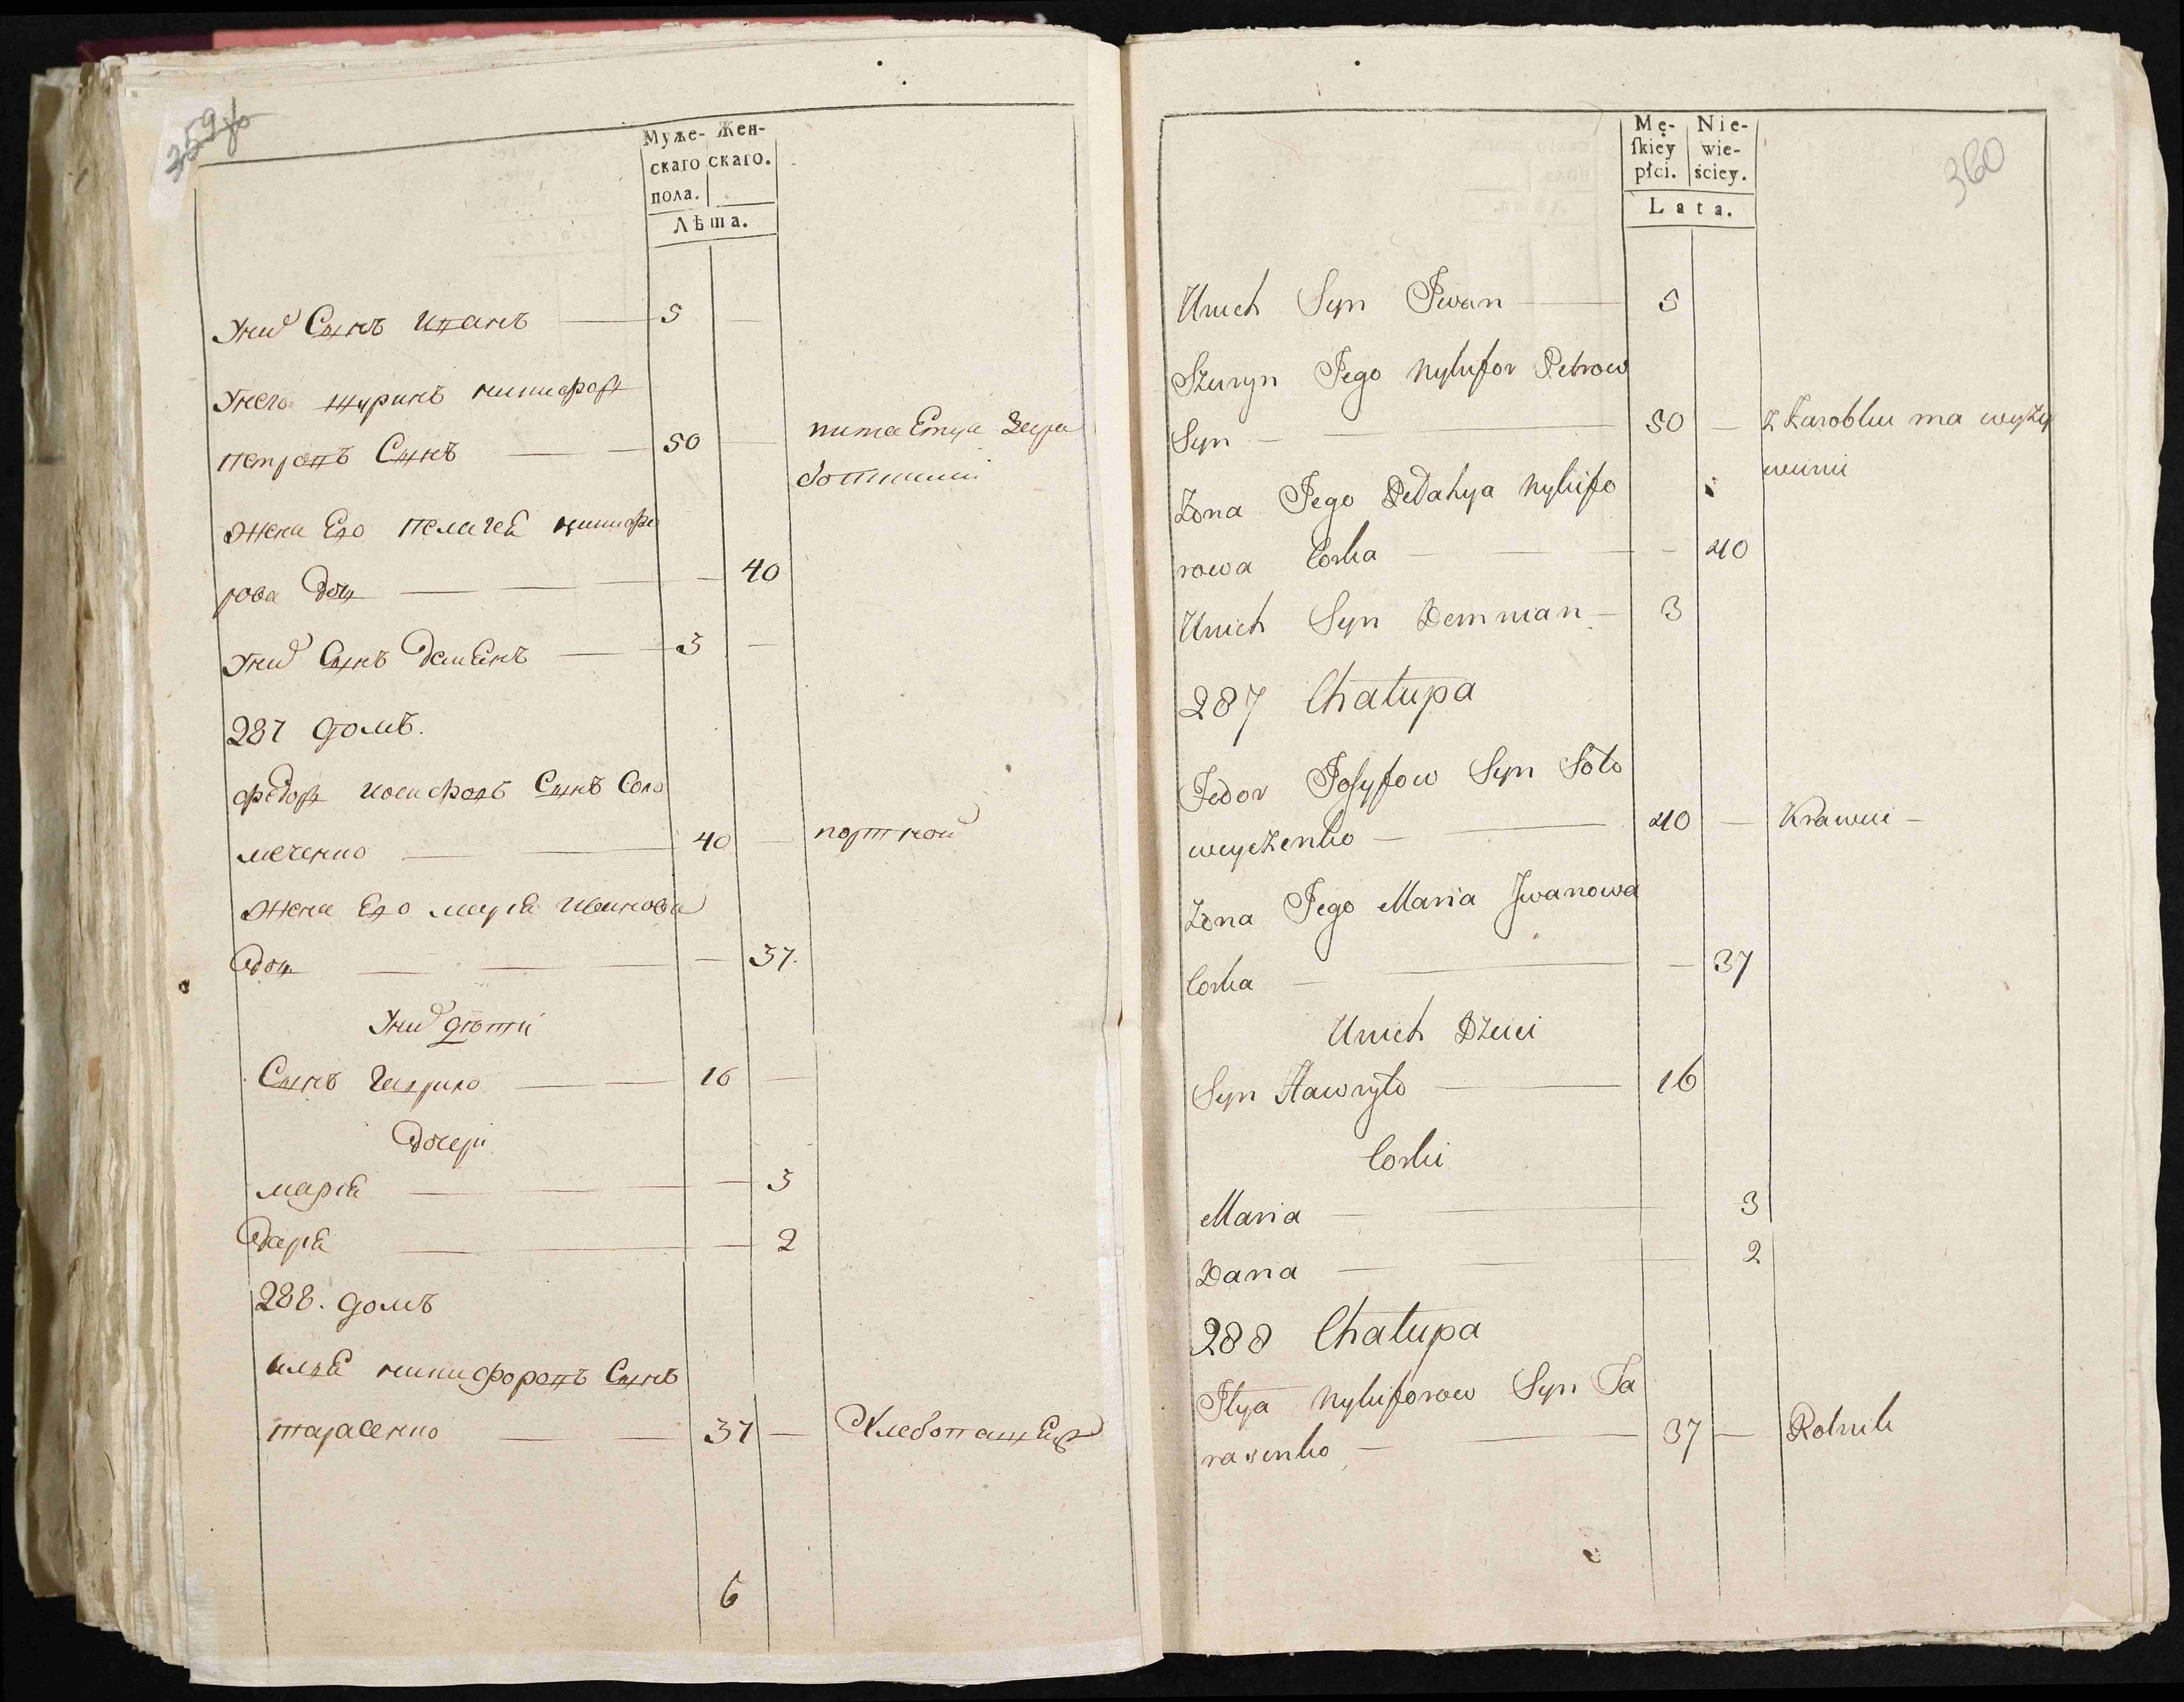 359 об
Муже- Жен-
скаго скаго.
пола.
Лѣта.
У них Сынъ Иванъ 5
У него шуринъ никифоръ
петровъ Сынъ 50 питаетца Зара
ботками
Жена Его пелагея никифо
рова дочь 40
У них Сынъ демянъ 3
287 домъ.
федоръ иосифовъ Сынъ Соло
меченко 40 портной
Жена Его мария Иванова
дочь 37.
У них дѣти
Сынъ гаврило 16
дочери
мария 3
дария 2
288. домъ
илия никифоровъ Сынъ
тарасенко 37 Хлебопашец
6
360
Mę- Nie-
ſkiey wie-
płci. ściey.
Lata.
Unich Syn Iwan 5
Szuryn Jego Nykifor Petrow
Syn 50 Z Zarobku ma wyży
wieni
Zona Jego Pelahya Nykifo
rowa Corka 40
Unich Syn Demnian 3
287 Chałupa
Fedor Josyfow Syn Soło
meyczenko 40 Krawiec
Zona Jego Maria Iwanowa
Corka 37
Unich Dzieci
Syn Hawryło 16
Corki
Maria 3
Daria 2
288 Chałupa
Ilya Nykiforow Syn Ta
rasenko 37 Rolnik